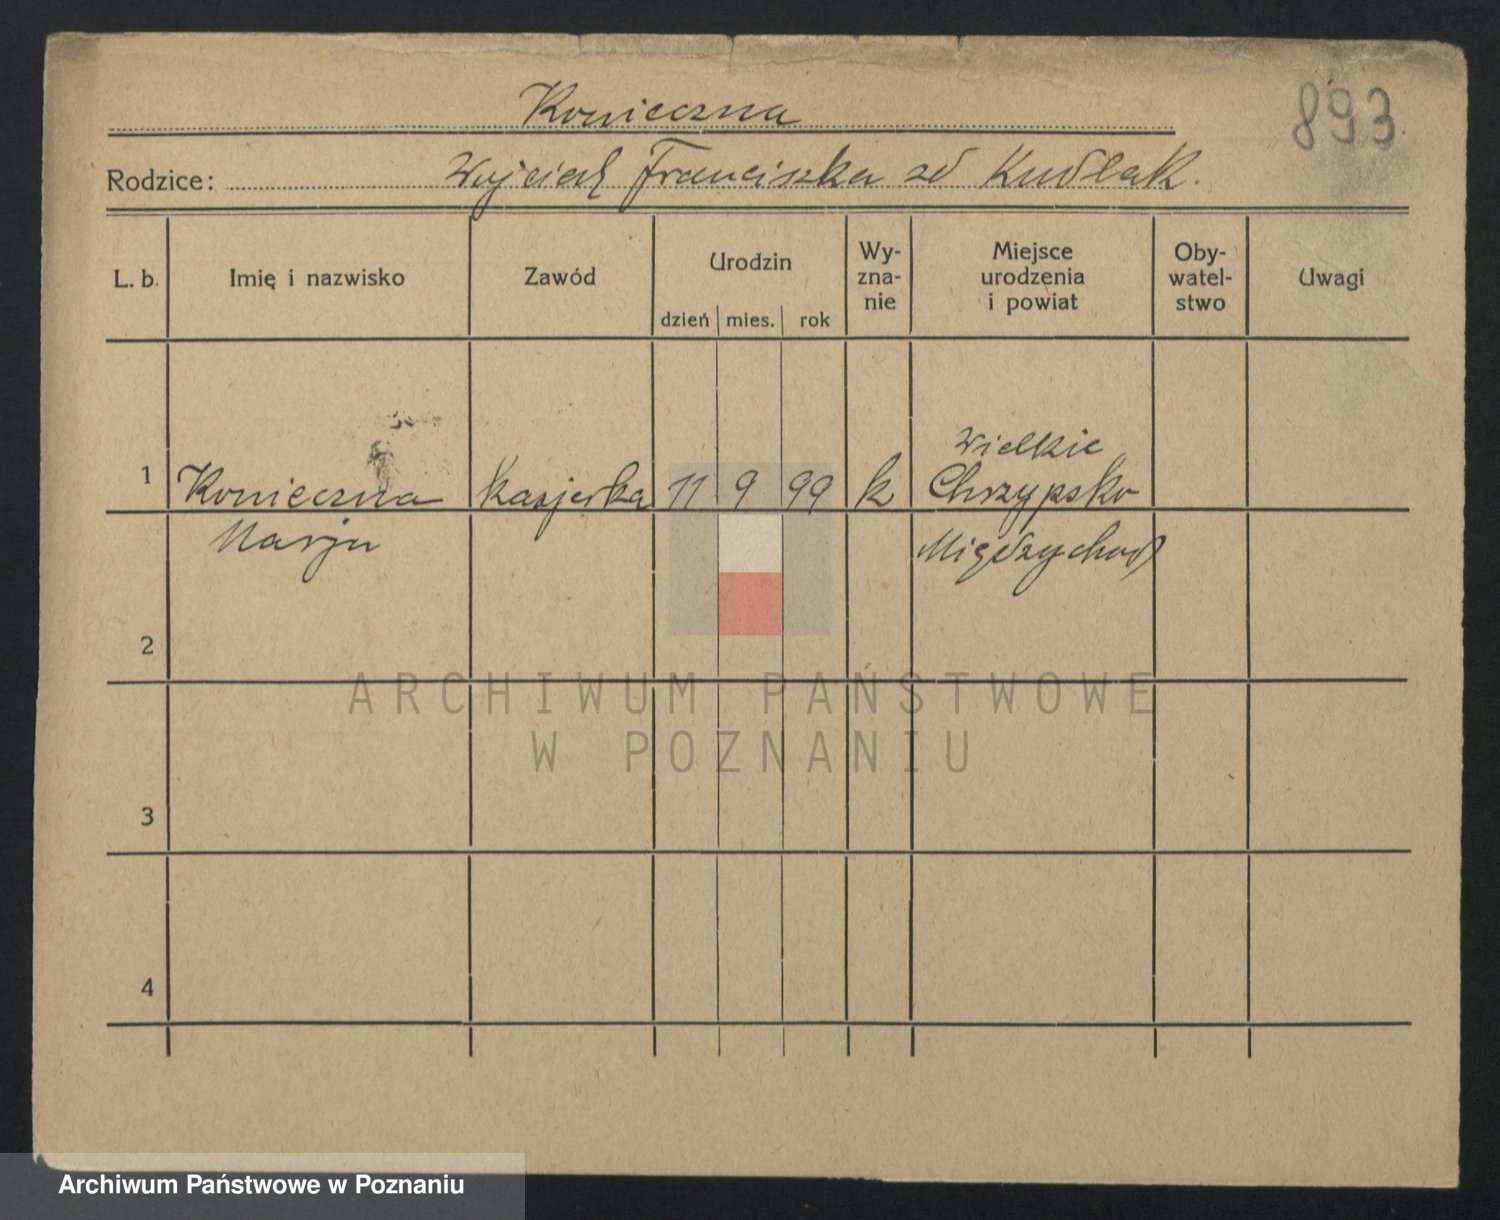 893
Konieczna
Rodzice: Wojciech Franciszka zd Kudlak.
L. b. Imię i nazwisko Zawód Urodzin dzień mies. rok Wy-zna-nie Miejsce urodzenia i powiat Oby-watel-stwo Uwagi
Wielkie
1 Konieczna kasjerka 11 9 99 k Chrzypsko
Marja Międzychod
2
ARCHIWUM PAŃSTWOWE
W POZNANIU
3
4
Archiwum Państwowe w Poznaniu